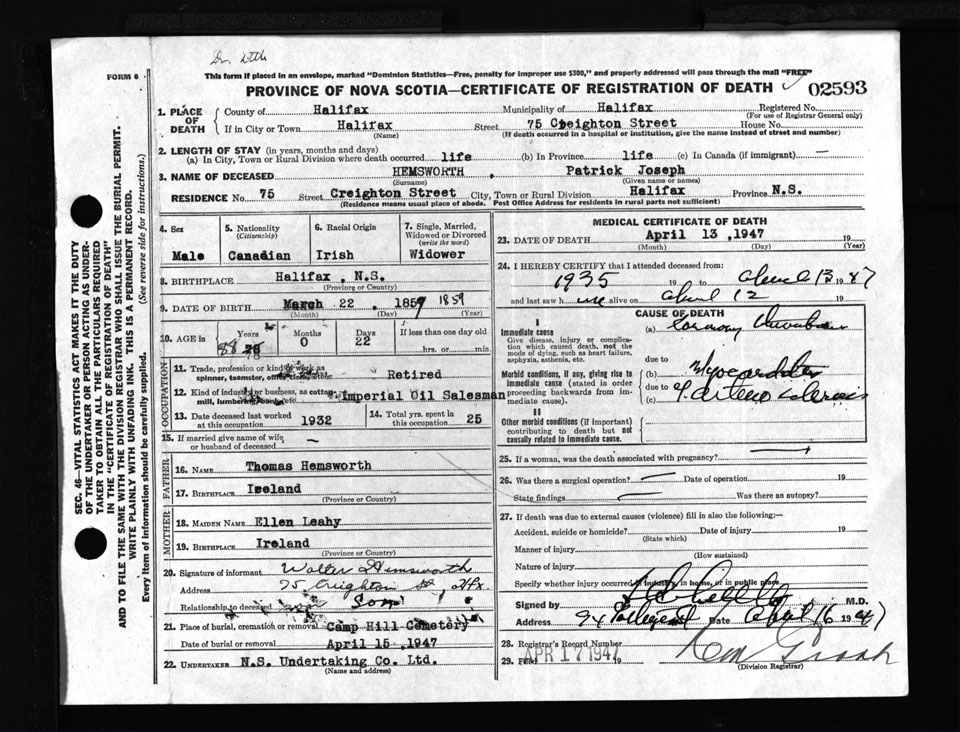 FORM 6
This form if placed in an envelope, marked "Dominion Statistics—Free, penalty for improper use $300," and properly addressed will pass through the mail "FREE"
PROVINCE OF NOVA SCOTIA—CERTIFICATE OF REGISTRATION OF DEATH 02593
1. PLACE OF DEATH
County of Halifax Municipality of Halifax Registered No.
(For use of Registrar General only)
If in City or Town Halifax Street 75 Creighton Street House No.
(Name) (If death occurred in a hospital or institution, give the name instead of street and number)
2. LENGTH OF STAY (in years, months and days)
(a) In City, Town or Rural Division where death occurred life (b) In Province life (c) In Canada (if immigrant) —
3. NAME OF DECEASED HEMSWORTH . Patrick Joseph
(Surname) (Given name or names)
RESIDENCE No. 75 Street Creighton Street City, Town or Rural Division Halifax Province N.S.
(Residence means usual place of abode. Post Office Address for residents in rural parts not sufficient)
4. Sex
Male
5. Nationality
(Citizenship)
Canadian
6. Racial Origin
Irish
7. Single, Married, Widowed or Divorced
(write the word)
Widower
8. BIRTHPLACE Halifax , N.S.
(Province or Country)
9. DATE OF BIRTH March 22 , 1859 1859
(Month) (Day) (Year)
10. AGE in
Years Months Days If less than one day old
88 78 0 22 hrs. or min.
OCCUPATION
11. Trade, profession or kind of work as spinner, teamster, office clerk, etc. Retired
12. Kind of industry or business, as cotton mill, lumbering, bank, etc. Imperial Oil Salesman
13. Date deceased last worked at this occupation 1932
14. Total yrs. spent in this occupation 25
15. If married give name of wife or husband of deceased —
FATHER
16. NAME Thomas Hemsworth
17. BIRTHPLACE Ireland
(Province or Country)
MOTHER
18. MAIDEN NAME Ellen Leahy
19. BIRTHPLACE Ireland
(Province or Country)
20. Signature of informant Walter Hemsworth
Address 75 Creighton St, Hfx
Relationship to deceased Son
21. Place of burial, cremation or removal Camp Hill Cemetery
Date of burial or removal April 15 ,1947
22. UNDERTAKER N.S. Undertaking Co. Ltd.
(Name and address)
MEDICAL CERTIFICATE OF DEATH
23. DATE OF DEATH April 13 ,1947 19
(Month) (Day) (Year)
24. I HEREBY CERTIFY that I attended deceased from:
1935 19 to April 13 1947
and last saw h alive on April 12 19
CAUSE OF DEATH
I
Immediate cause
Give disease, injury or complication which caused death, not the mode of dying, such as heart failure, asphyxia, asthenia, etc.
(a) Coronary
due to
Morbid conditions, if any, giving rise to immediate cause (stated in order proceeding backwards from immediate cause).
(b)
due to
(c)
II
Other morbid conditions (if important) contributing to death but not causally related to immediate cause.
25. If a woman, was the death associated with pregnancy? —
26. Was there a surgical operation? — Date of operation 19
State findings — Was there an autopsy?
27. If death was due to external causes (violence) fill in also the following:
Accident, suicide or homicide? Date of injury 19
(State which)
Manner of injury
(How sustained)
Nature of injury
Specify whether injury occurred in industry, in home, or in public place
Signed by M.D.
Address Date April 16 1947
28. Registrar's Record Number
29. Filed APR 17 1947 19
(Division Registrar)
SEC. 46—VITAL STATISTICS ACT MAKES IT THE DUTY
OF THE UNDERTAKER OR PERSON ACTING AS UNDERTAKER
TO OBTAIN ALL THE PARTICULARS REQUIRED
IN THE "CERTIFICATE OF REGISTRATION OF DEATH"
AND TO FILE THE SAME WITH THE DIVISION REGISTRAR WHO SHALL ISSUE THE BURIAL PERMIT.
WRITE PLAINLY WITH UNFADING INK. THIS IS A PERMANENT RECORD.
Every item of information should be carefully supplied. (See reverse side for instructions.)